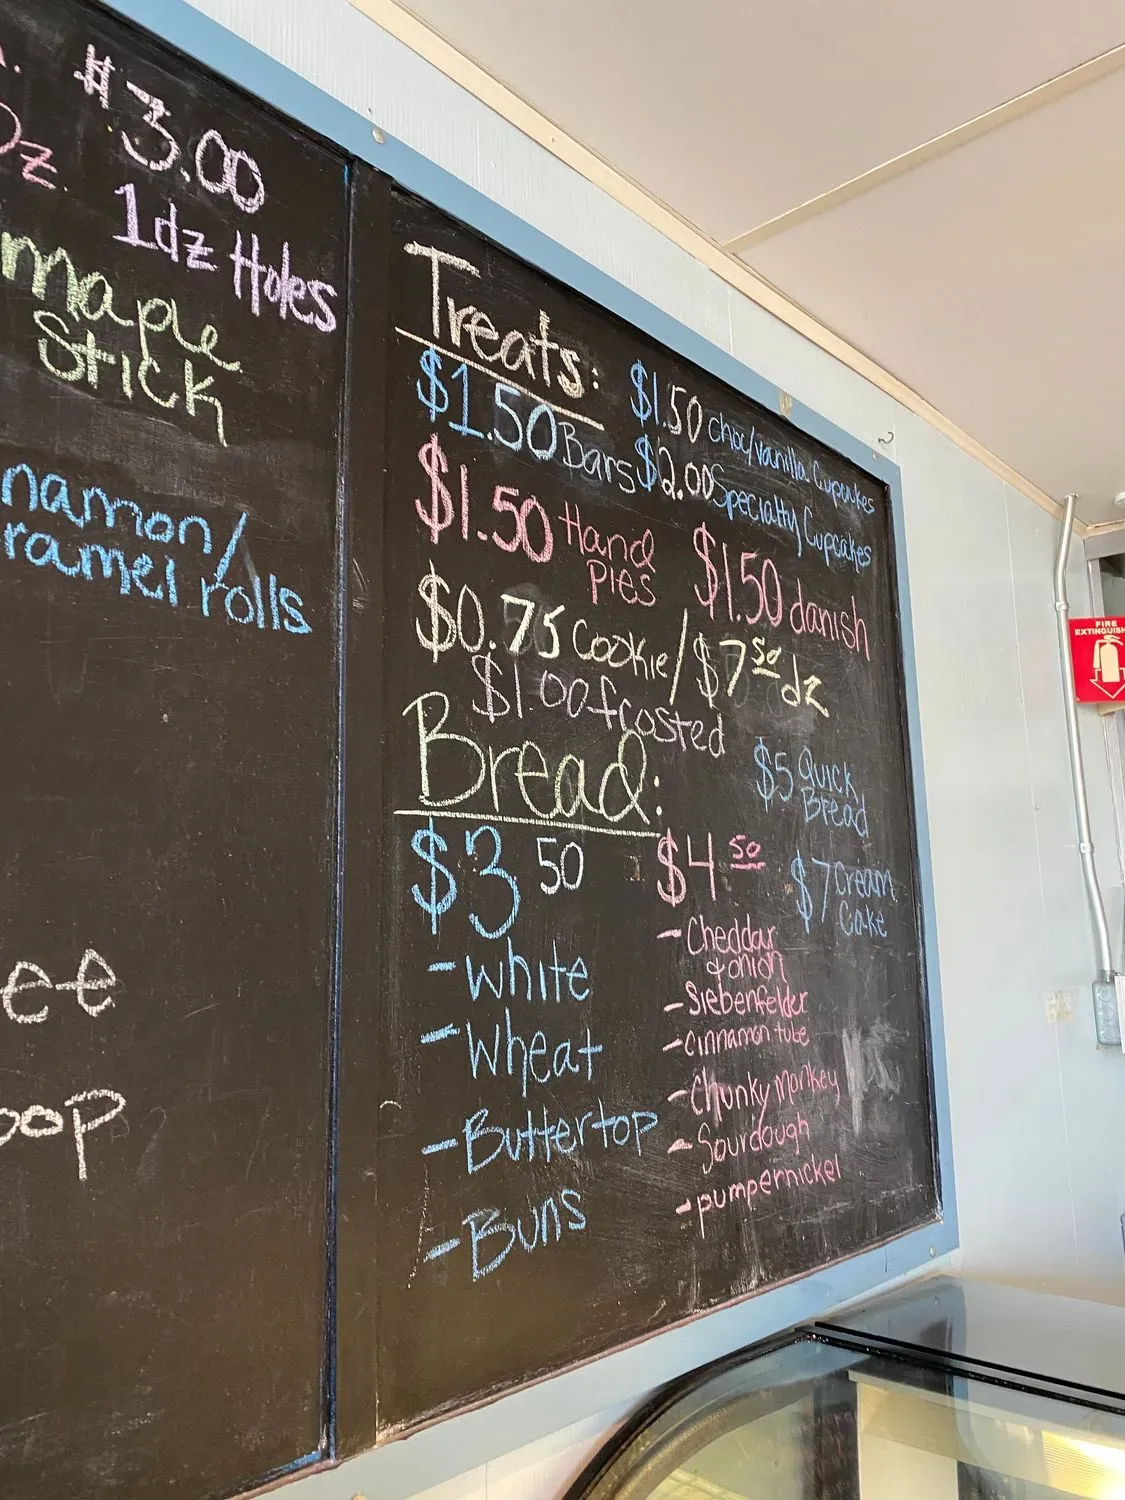 $3.00
1dz Holes
maple
Stick
namon/
ramel rolls
ee
oop
Treats:
$1.50 Bars
$1.50 Hand
pies
$0.75 Cookie/$7 50 dz
$1.00 frosted
$1.50 choc/vanilla Cupcakes
$2.00 Specialty Cupcakes
$1.50 danish
Bread:
$3 50
- white
- wheat
- Buttertop
- Buns
$4 50
- Cheddar
& onion
- Siebenfelder
- cinnamon tube
- Chunky Monkey
- Sourdough
- pumpernickel
$5 Quick
Bread
$7 Cream
Cake
FIRE
EXTINGUISH